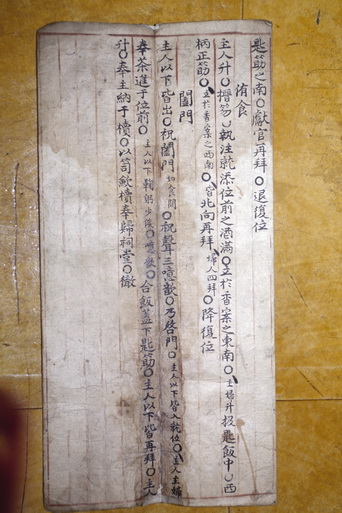 匙筯之南○獻官再拜○退復位
侑食
主人升○搢笏○執注就添位前之酒滿○立於香案之東南○主婦升扱匙飯中○西
柄正筯○立於香案之西南○皆北向再拜○婦人四拜○降復位
闔門
主人以下皆出○祝闔門如食間○祝聲三噫歆○乃啓門○主人以下皆入就位○主人主婦
奉茶進于位前○主人以下鞠躬少俟○噫歆○合飯蓋下匙筯○主人以下皆再拜○主人
升○奉主納于櫝○以笥斂櫝奉歸祠堂○徹